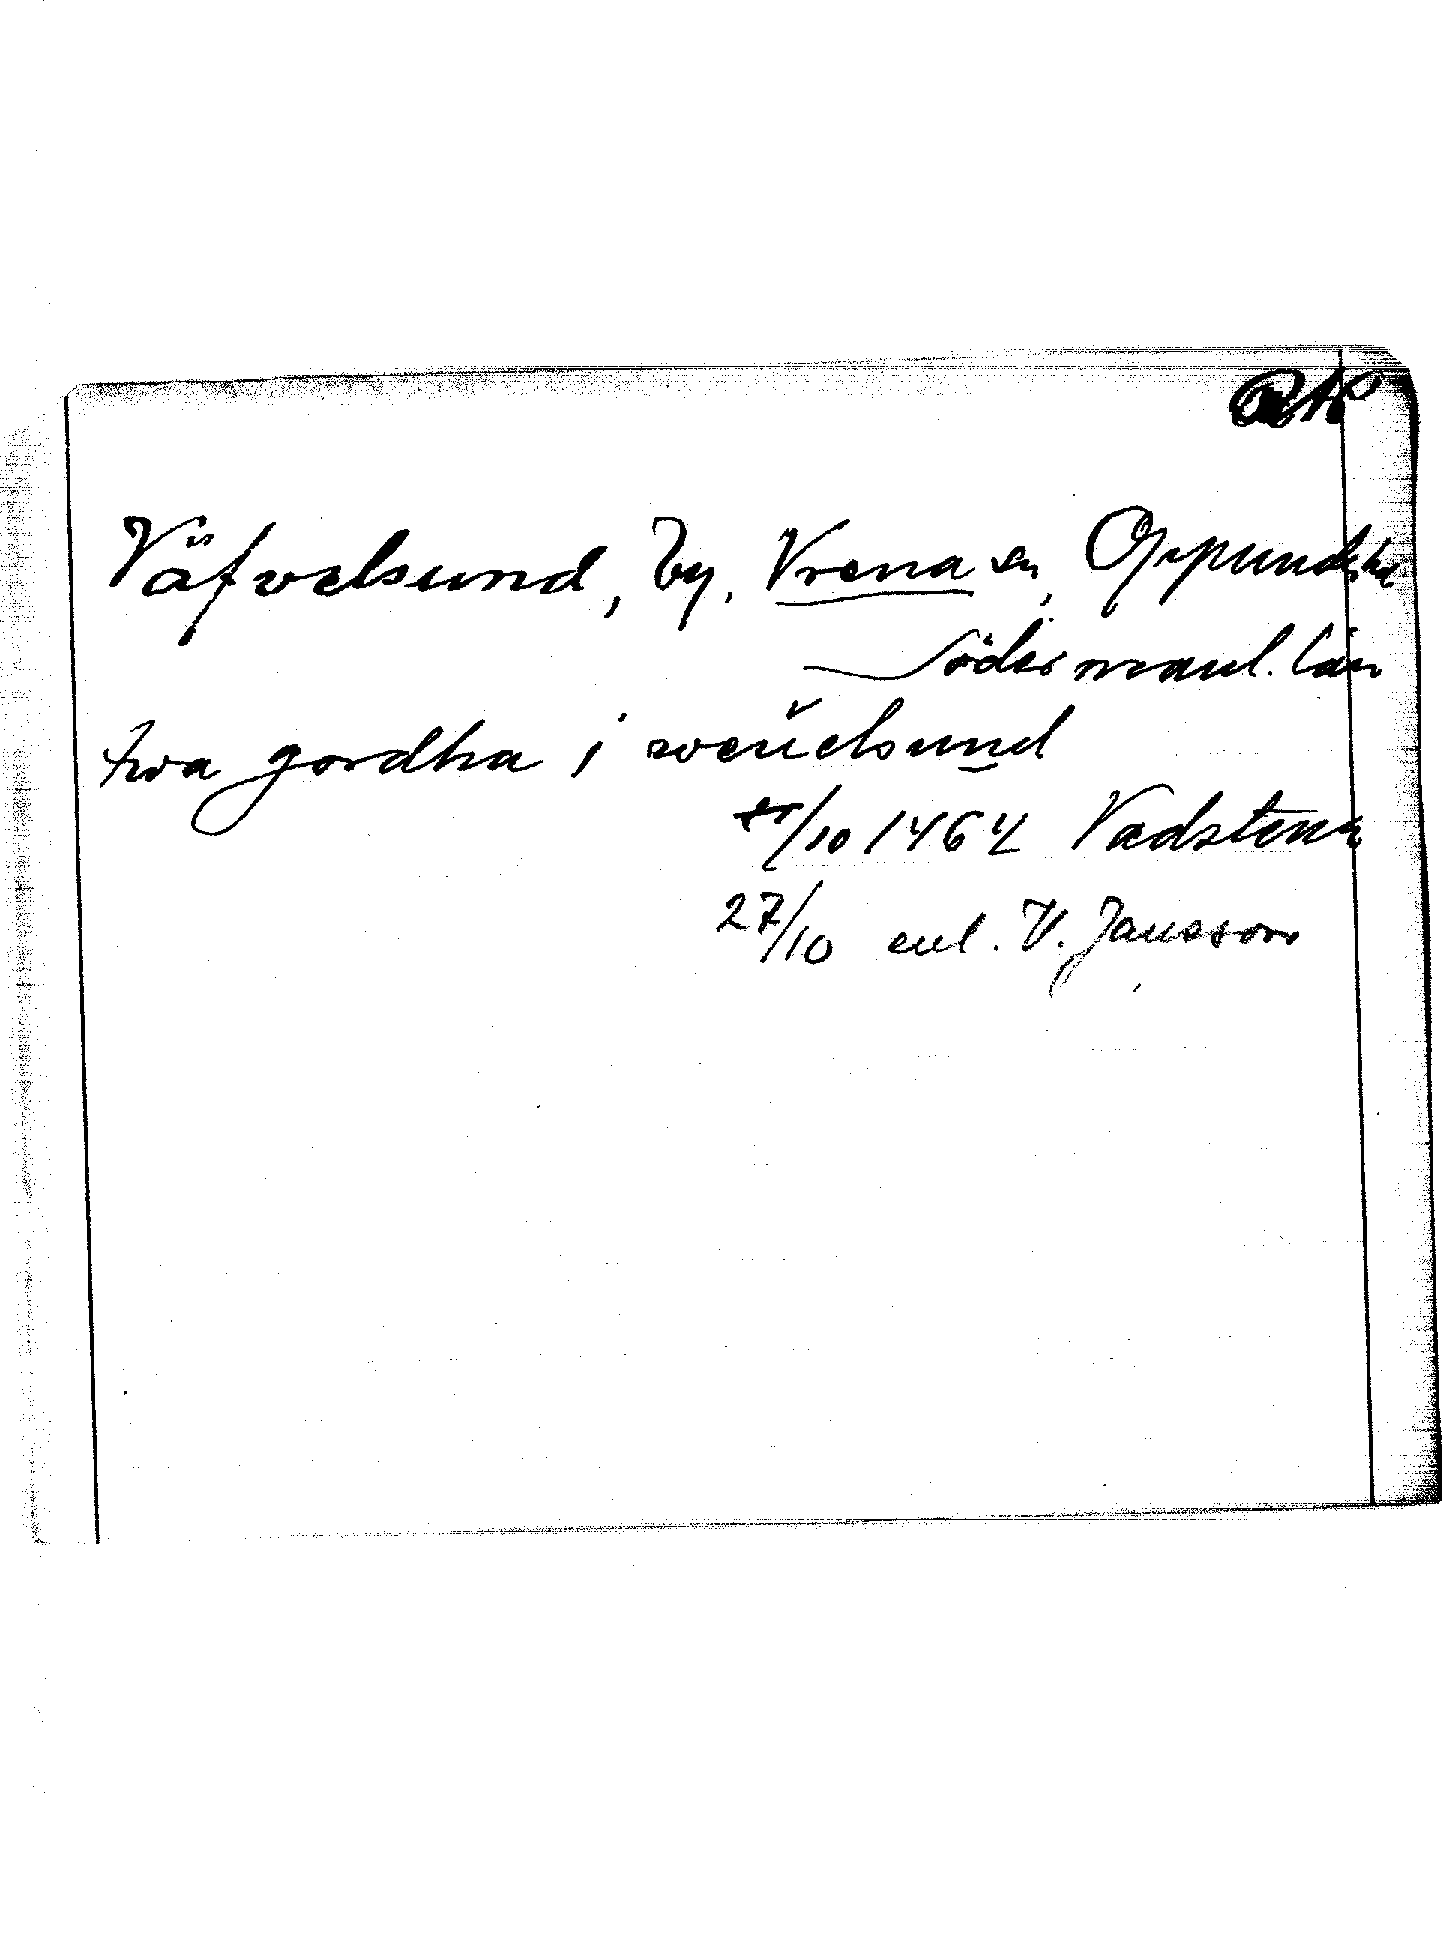 Väfvelsund, by, Vrena sn, Oppunda hd
Södermanl. län
twa gordha i weuelsund
/10 1464 Vadstena
27/10 enl. V. Jansson